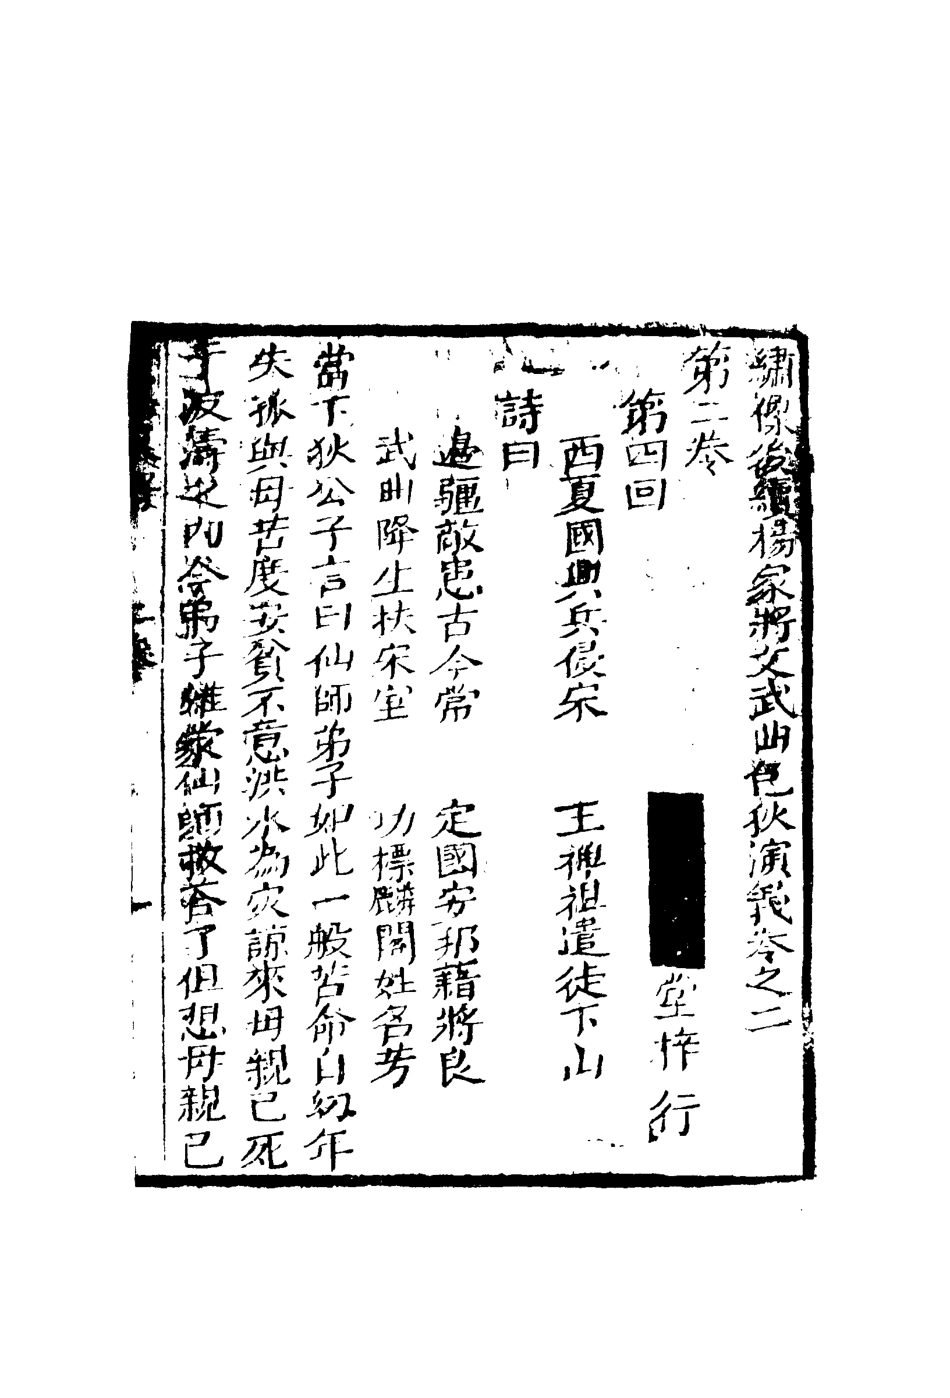 繡像後續楊家將文武曲包狄演義卷之二
第二卷
堂梓行
第四回
西夏國興兵侵宋　王禪祖遣徒下山
詩曰
邊疆敵患古今常　定國安邦藉將良
武曲降生扶宋室　功標麟閣姓名芳
當下狄公子言曰仙師弟子如此一般苦命自幼年
失孤與母苦度安貧不意洪水為灾諒來母親已死
于波濤之內今弟子雖蒙仙師救活了但想母親已